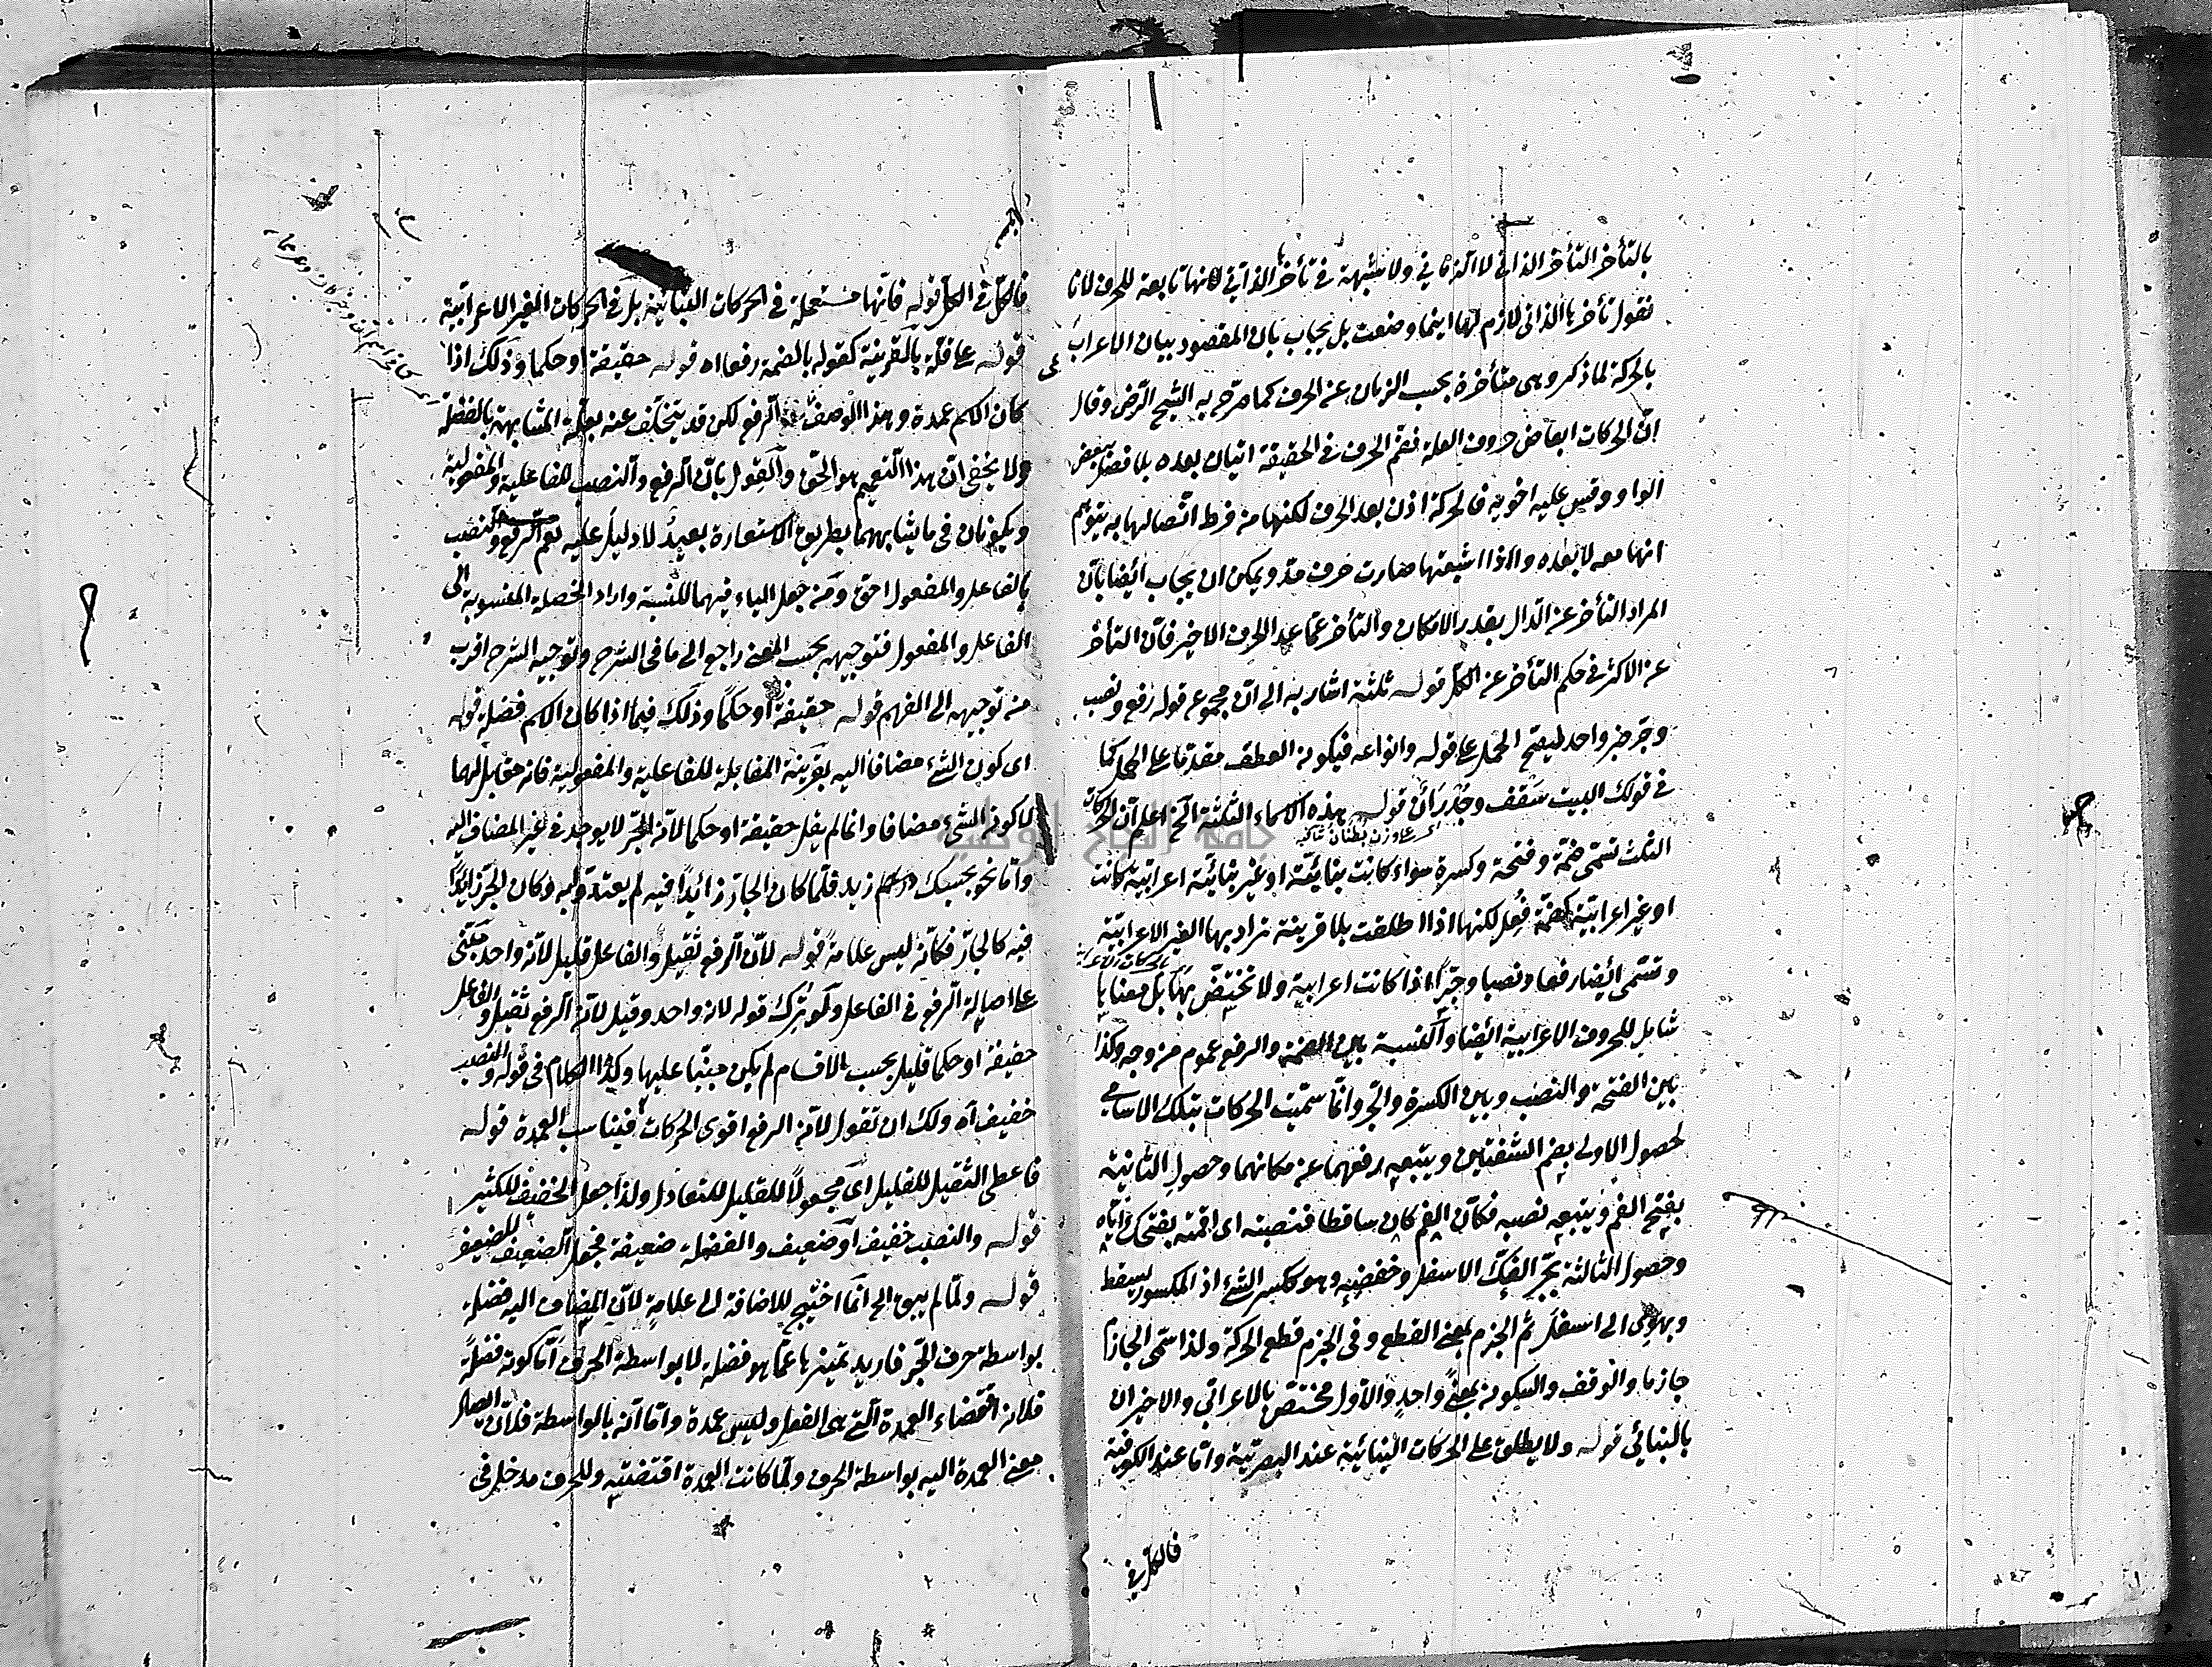 بالتأخر التأخر الذاتي لا الزماني ولا شبهة في تأخرها الذاتي لانها تابعة للحرف لانا
نقول تأخرها الذاتي لازم لها اينما وضعت بل يجاب بان المقصود بيان الاعراب
بالحركة لما ذكر وهى متأخرة بحسب الزمان عن الحرف كما صرح به الشيخ الرضي وقال
ان الحركات ابعاض حروف العلة فضم الحرف في الحقيقة اتيان بعده بلا فصل ببعض
الواو وقس عليه اخويه فالحركة اذن بعد الحرف لكنها من فرط اتصالها به يتوهم
انها معه لا بعده واذا اشبعتها صارت حرف مد ويمكن ان يجاب ايضا بأن
المراد التأخر عن الدال بقدر الامكان والتأخر عما عدا الحرف الاخير فأن التأخر
عن الاكثر في حكم التأخر عن الكل قوله ثلثة اشار به الى ان مجموع قوله رفع ونصب
وجر خبر واحد ليصح الحمل على قوله وانواعه فيكون العطف مقدما على الحمل كما
في قولك البيت سقف وجدران قوله هذه الاسماء الثلثة الخ اعلم ان الحركات
على وزن بطنان
الثلث تسمى ضمة وفتحة وكسرة سواء كانت بنائية او غير بنائية اعرابية كانت
او غير اعرابية كضمة فُعِل لكنها اذا اطلقت بلا قرينة يراد بها الغير الاعرابية
وتسمى ايضا رفعا ونصبا وجرا اذا كانت اعرابية ولا تختص بها بل معناها
شامل للحروف الاعرابية ايضا والنسبة بين الضمة والرفع عموم من وجه وكذا
بين الفتحة والنصب وبين الكسرة والجر وانما سميت الحركات بتلك الاسامى
لحصول الاولى بضم الشفتين ويتبعه رفعهما عن مكانهما وحصول الثانية
بفتح الفم ويتبعه نصبه فكأن الفم كان ساقطا فنصبته اى اقمته بفتحك اياه
وحصول الثالثة بجر الفك الاسفل وخفضه وهو ككسر الشئ اذ المكسور يسقط
ويهوى الى اسفل ثم الجزم بمعنى القطع وفى الجزم قطع الحركة ولذا سمى الجازم
جازما والوقف والسكون بمعنى واحد والاول مختص بالاعرابي والاخيران
بالبنائي قوله ولا يطلق على الحركات البنائية عند البصرية واما عند الكوفية
فالكل في
فالكل في الكل قوله فانها مستعملة في الحركات البنائية بل في الحركات الغير الاعرابية
قوله بالقرينة كقوله بالضمة رفعا اه قوله حقيقة او حكما وذلك اذا
كان الاسم عمدة وهذا الوصف الرفع لكن قد يتخلف عنه بعلة المشابهة بالفضلة
ولا يخفى ان هذا التعميم هو الحق والقول بأن الرفع والنصب للفاعلية والمفعولية
ويكونان في ما يشابههما بطريق الاستعارة بعيد لا دليل عليه نعم الرفع والنصب
بالفاعل والمفعول احق ومن جعل الياء فيهما للنسبة واراد الخصلة المنسوبة الى
الفاعل والمفعول فتوجيهه بحسب المعنى راجع الى ما في الشرح وتوجيه الشرح اقرب
من توجيهه الى الفهم قوله حقيقة او حكما وذلك فيما اذا كان الاسم فضلة قوله
اى كون الشئ مضافا اليه بقرينة المقابلة للفاعلية والمفعولية فانه مقابل لهما
لا كون الشئ مضافا وانما لم يقل حقيقة او حكما لان الجر لا يوجد في غير المضاف اليه
واما نحو بحسبك زيد فلما كان الجار زائدا فيه لم يعتد به وكان الجر زائدا
فيه كالجار فكأنه ليس علامة قوله لأن الرفع ثقيل والفاعل قليل لأنه واحد مبني
على اصالة الرفع في الفاعل ولو ترك قوله لانه واحد وقيل لان الرفع ثقيل والفاعل
حقيقة او حكما قليل بحسب الاقسام لم يكن مبنيا عليها وكذا الكلام في قوله والنصب
خفيف اه ولك ان تقول لان الرفع اقوى الحركات فيناسب العمدة قوله
فاعطى الثقيل للقليل اى مجعولا للقليل للتعادل ولذا جعل الخفيف للكثير
قوله والنصب خفيف او ضعيف والفضلة ضعيفة فجعل الضعيف للضعيف
قوله ولما لم يبق الخ انما احتيج للاضافة الى علامة لأن المضاف اليه فضلة
بواسطة حرف الجر فاريد تميزها عما هو فضلة لا بواسطة الحرف اما كونه فضلة
فلان اقتضاء العمدة التي هى الفعل وليس عمدة واما انه بالواسطة فلأن ايصال
معنى العمدة اليه بواسطة الحرف ولما كانت العمدة اقتضته وللحرف مدخل في
جامعة النجاح الوطنية